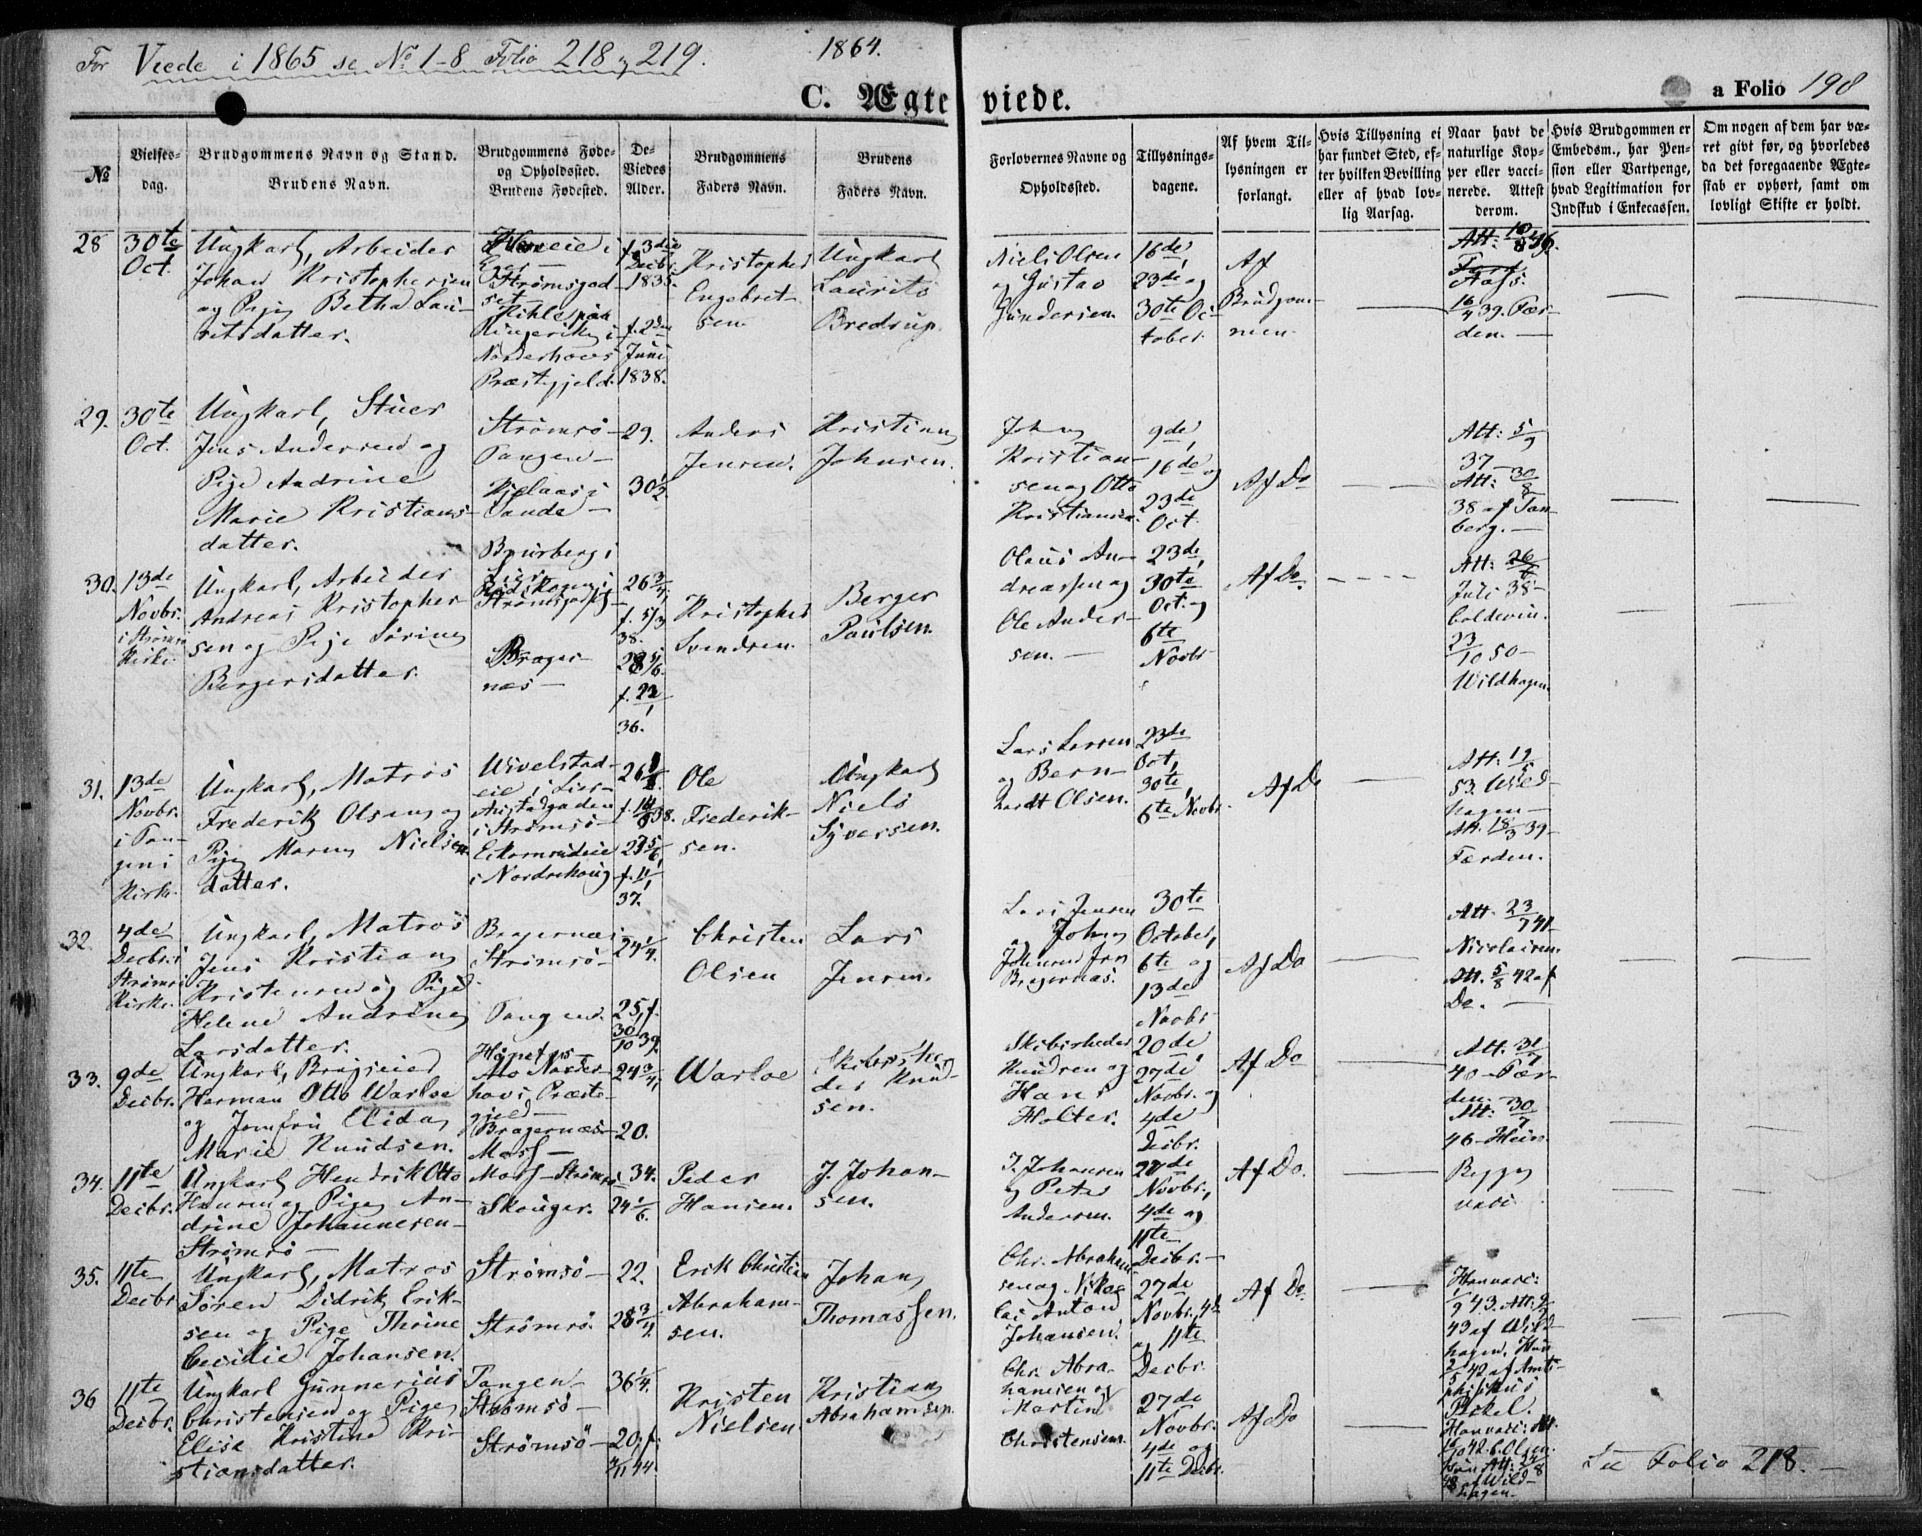 For Viede i 1865 se No 1-8 Folio 218 og 219.
1864.
C. Ægteviede.
a Folio 198
No
Vielses-
dag.
Brudgommens Navn og Stand.
Brudens Navn.
Brudgommens Føde-
og Opholdssted.
Brudens Fødested.
De
Viedes
Alder.
Brudgommens
Faders Navn.
Brudens
Faders Navn.
Forlovernes Navne og
Opholdssted.
Tillysnings-
dagene.
Af hvem Til-
lysningen er
forlangt.
Hvis Tillysning ei
har fundet Sted, ef-
ter hvilken Bevilling
eller af hvad lov-
lig Aarsag.
Naar havt de
naturlige Kop-
per eller vacci-
nerede. Attest
derom.
Hvis Brudgommen er
Embedsm., har Pen-
sion eller Vartpenge,
hvad Legitimation for
Indskud i Enkecassen.
Om nogen af dem har væ-
ret givt før, og hvorledes
da det foregaaende Ægte-
skab er ophørt, samt om
lovligt Skifte er holdt.
28
30te
Oct.
Ungkarl, Arbeider
Johan Kristophersen
og Pige Betha Lau-
ritsdatter.
Strømsgod-
set
Ringerike i
Norderhovs
Præstegjeld.
f. 3die
Decbr.
1835.
f. 2den
Juni
1838.
Kristopher
Engebret-
sen.
Ungkarl
Laurits
Bredrup.
Niels Olsen
og Gustav
Gundersen.
16de,
23de og
30te Oc-
tober.
Af
Brudgom-
men.
16/4 39. Fær-
den.
29.
30te
Oct.
Ungkarl, Stuer
Jens Andersen og
Pige Andrine
Marie Kristians-
datter.
Strømsø
Tangen
Sande
29.
30 1/2.
Anders
Jensen.
Kristian
Johnsen.
John
Kristian-
sen og Otto
Kristiansen.
9de,
16de og
23de
Oct.
Af Do
Att: 5/9
37
Att: 30/8
38 af Tan-
berg.
30.
13de
Novbr.
i Strømsø
Kirke.
Ungkarl, Arbeider
Andreas Kristopher-
sen og Pige Sørine
Bergersdatter.
Brager-
næs
26 3/4,
f. 5/3
38.
28 5/6.
f. 22/1
36.
Kristopher
Svendsen.
Berger
Paulsen.
Olaus An-
dreassen og
Ole Ander-
sen.
23de,
30te
Oct. og
6te
Novbr
Af Do.
Juli 38
Boldevin.
23/10 50
Wildhagen.
31.
13de
Novbr.
i Tan-
gens
Kirke
Ungkarl, Matros
Frederik Olsen og
Pige Maren Nielsen
datter.
Wivelstad-
eie i Lier
Austadgaden
i Strømsø
i Nordrehoug
f. 11/1
37.
Ole
Frederik-
sen.
Ungkarl
Niels
Syversen.
Lars Larsen
og Bern-
hardt Olsen.
23de
Oct,
30te,
6te Novbr.
Af Do
53. Wild-
hagen
Att. 18/3 39
Færden.
32.
4de
Decbr. i
Strømsø
Kirke.
Ungkarl, Matros
Jens Kristian
Kristensen og Pige
Helene Andrine
Larsdatter.
Bragernæs
Strømsø
Tangen.
24 1/4.
25, f.
30/10 39.
Christen
Olsen
Lars
Jensen.
Lars Jensen
og John
Johnsen fra
Bragernæs.
30te
October,
6te og
13de
Novbr
Af Do
Att. 23/7 41
Nicolaisen.
Att. 5/8 42 af
Do.
33.
9de
Decbr.
Ungkarl, Brugseier
Herman Otto Warloe
og Jomfru Elida
Marie Knudsen.
Hønefos
Norder-
hovs Præste-
gjeld
Bragernæs
Moss
24 3/4,
20.
Warloe
Skibsrhe-
der Knud-
sen.
Skibsrheder
Knudsen og
Hans
Holter.
20de
27de
Novbr. og
4de
Decbr.
Af Do
Att: 31/7
40 Fær-
den.
Att: 30/7
46 Hein
34.
11te
Decbr.
Ungkarl Hendrik Otto
Hansen og Pige An-
drine Johannesen
Strømsø
Moss Strømsø
Skouger.
34.
24 1/6.
Peder
Hansen.
J. Johan-
sen.
J. Johansen
og Peter
Andersen.
27de
Novbr,
4de og
11te
Decbr.
Af Do.
Begge
vacc
35.
11te
Decbr
Ungkarl, Matros
Søren Didrik Erik-
sen og Pige Thrine
Cecilie Johansen.
Strømsø
Strømsø.
22.
28 3/4.
Erik Christian
Abraham-
sen.
Johan
Thomassen.
Chr. Abraham-
sen og Niko-
lai Anton
Johansen.
27de
Novbr, 4de
og 11te
Decbr.
Af Do
Han vacc:
43 af Wild-
hagen. Hun
42 af Amts-
physikus
36
11te
Decbr.
Ungkarl Gunnerius
Christensen og Pige
Elise Kristine Kri-
stiansdatter.
Tangen
Strømsø
Strømsø
36 1/4.
20, f.
Kristen
Nielsen.
Kristian
Abrahamsen.
Chr. Abra-
hamsen og
Martin
Christensen.
27de
Novbr.
4de og
11te Decbr.
Af Do
Han vacc: Att.
Wild-
hagen
Se Folio 218.